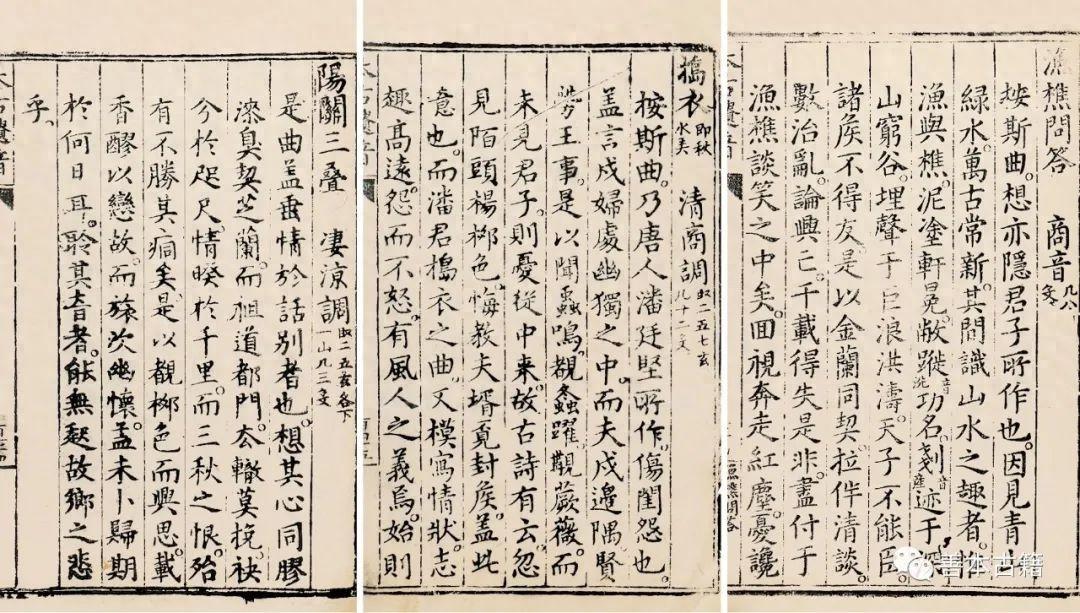 漁樵問答 商音 凡八
桉斯曲。想亦隱君子所作也。因見青
綠水。萬古常新。其問識山水之趣者。
漁與樵。泥塗軒冕。敝蹝功名。剗迹于
山窮谷。埋聲于巨浪洪濤。天子不能臣。
諸矦不得友。是以金蘭同契。拉伴清談。
數治亂。論興亡。千載得失是非。盡付于
漁樵談笑之中矣。囬視奔走紅塵。憂讒
漁樵問答
搗衣 即秋水 清商調 二五七玄 凡十二
桉斯曲。乃唐人潘廷堅所作。傷閨怨也。
盖言戍婦處幽獨之中。而夫戍邉隅。賢
勞王事。是以聞蟲鳴。覩螽躍。觀蕨薇。而
未見君子。則憂從中来。故古詩有云。忽
見陌頭楊栁色。悔教夫壻覓封矦。盖此
意也。而潘君搗衣之曲。又模寫情狀。志
趣髙遠。怨而不怒。有風人之義焉。始則
陽關三叠 凄凉調 二五玄各下一 凡三
是曲盖垂情於話别者也。想其心同膠
漆。臭契芝蘭。而祖道都門。厺轍莫挽。袂
分於咫尺。情暌於千里。而三秋之恨。殆
有不勝其痌矣。是以覩栁色而興思。載
香醪以戀故。而旅次幽懷。孟未卜歸期
於何日耳。聆其音者。能無起故鄉之悲
乎。
善本古籍